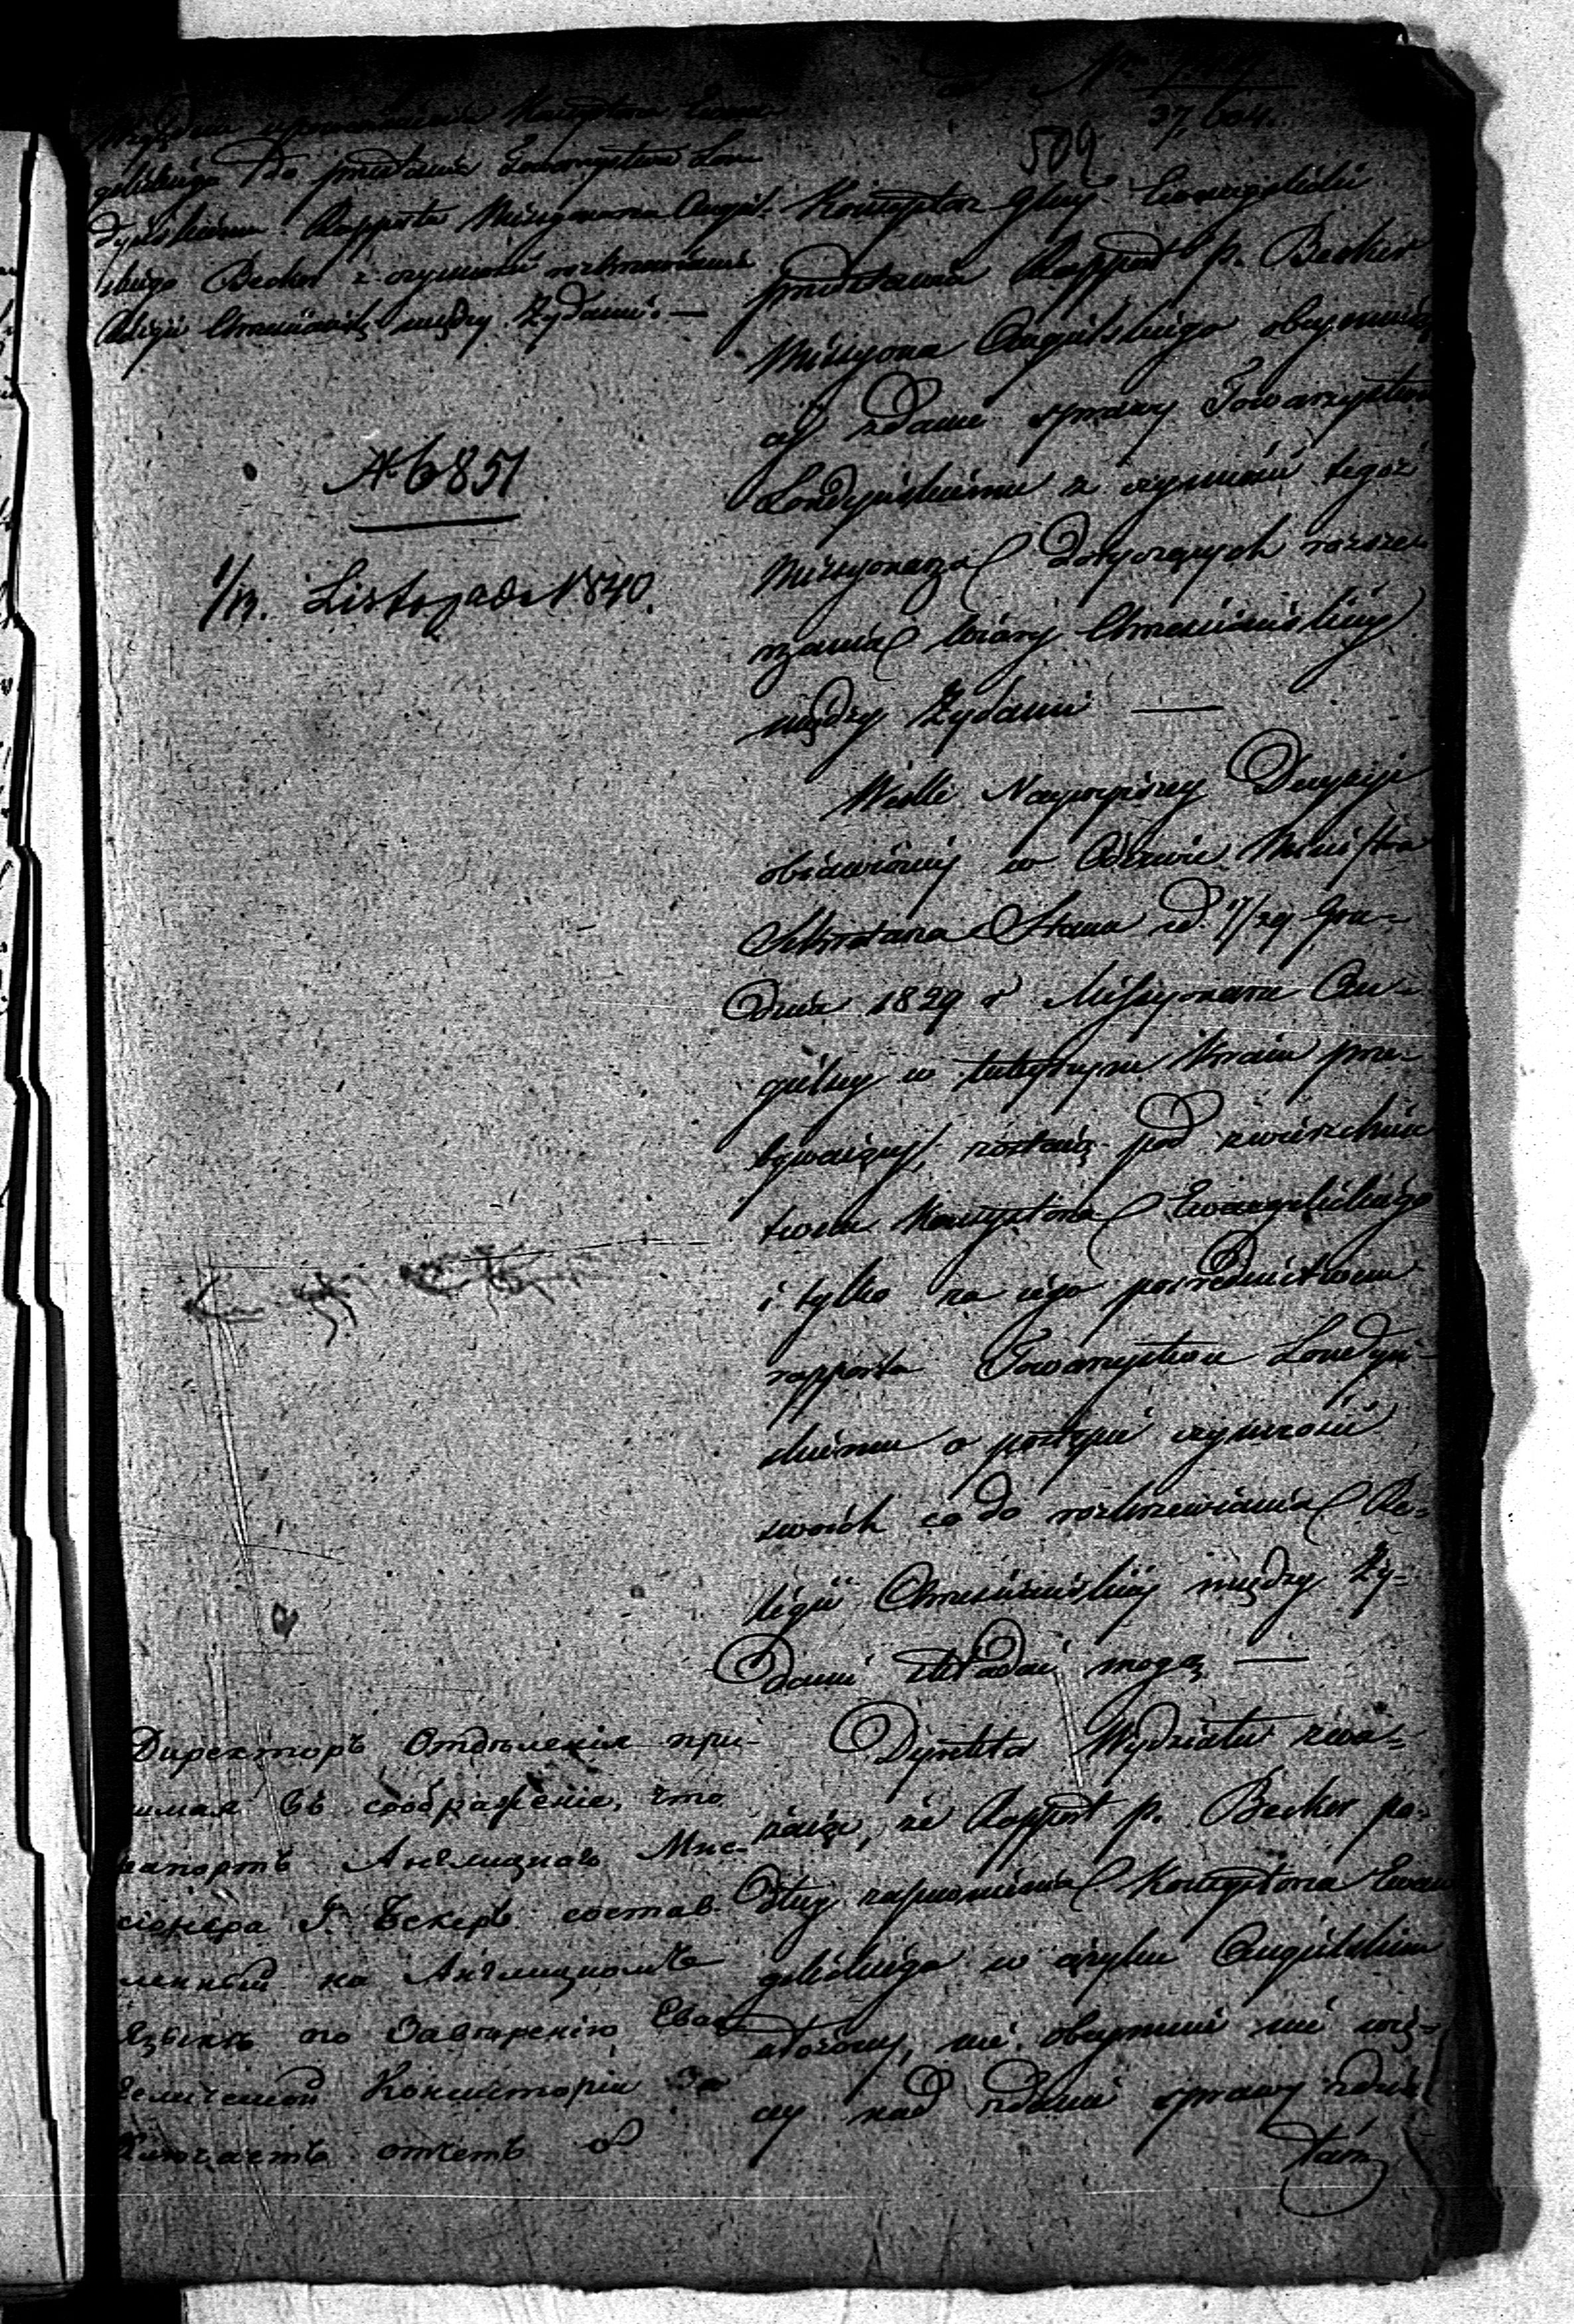 37,604.
509
Względem upoważnienia Konsystorza Ewan-
gelickiego do przesłania Towarzystwu Lon-
dyńskiemu Rapportu Missyonarza Angiel-
skiego Becker z czynności rozkrzewiania
Religii Chrześciańskiej między Żydami. —
№ 6851
1/13. Listopada 1840.
Konsystorz Glny Ewangelicki
przedstawia Rapport p. Becker
Missyona Angielskiego obeymują-
cy zdanie sprawy Towarzystwu
Londyńskiemu z czynności tegoż
Missyonarza dotyczących rozszer-
rzania wiary Chrześciańskiey
między Żydami —
Wedle Naywyższey Decyzyi
obiawioney w Odezwie Ministra
Sekretarza Stanu z d. 17/29 Gru-
dnia 1829 r Missyonarze An-
gielscy w tuteyszym Kraiu prze-
bywaiący, zostaią pod zwierzchnic-
twem Konsystorza Ewangelickiego
i tylko za iego pośrednictwem
rapporta Towarzystwu Londyń-
skiemu o postępie czynności
swoich co do rozkrzewiania Re-
ligii Chrześciańskiey między Ży-
dami składać mogą —
Dyrektor Wydziału zwa-
żaiąc, że Rapport p. Becker po-
dług zapewnienia Konsystorza Ewan
gelickiego w ięzyku Angielskim
złożony, nie obeymuie nic wię-
cey nad zdanie sprawy
Директоръ Отдѣленія при-
нимая въ соображеніе, что
рапортъ Англицкаго Мис-
сіонера Г. Бекеръ состав-
ленный на Англицкомъ
языкѣ по Завѣренію Еван
гелической Консисторіи За
ключаетъ отчетъ о